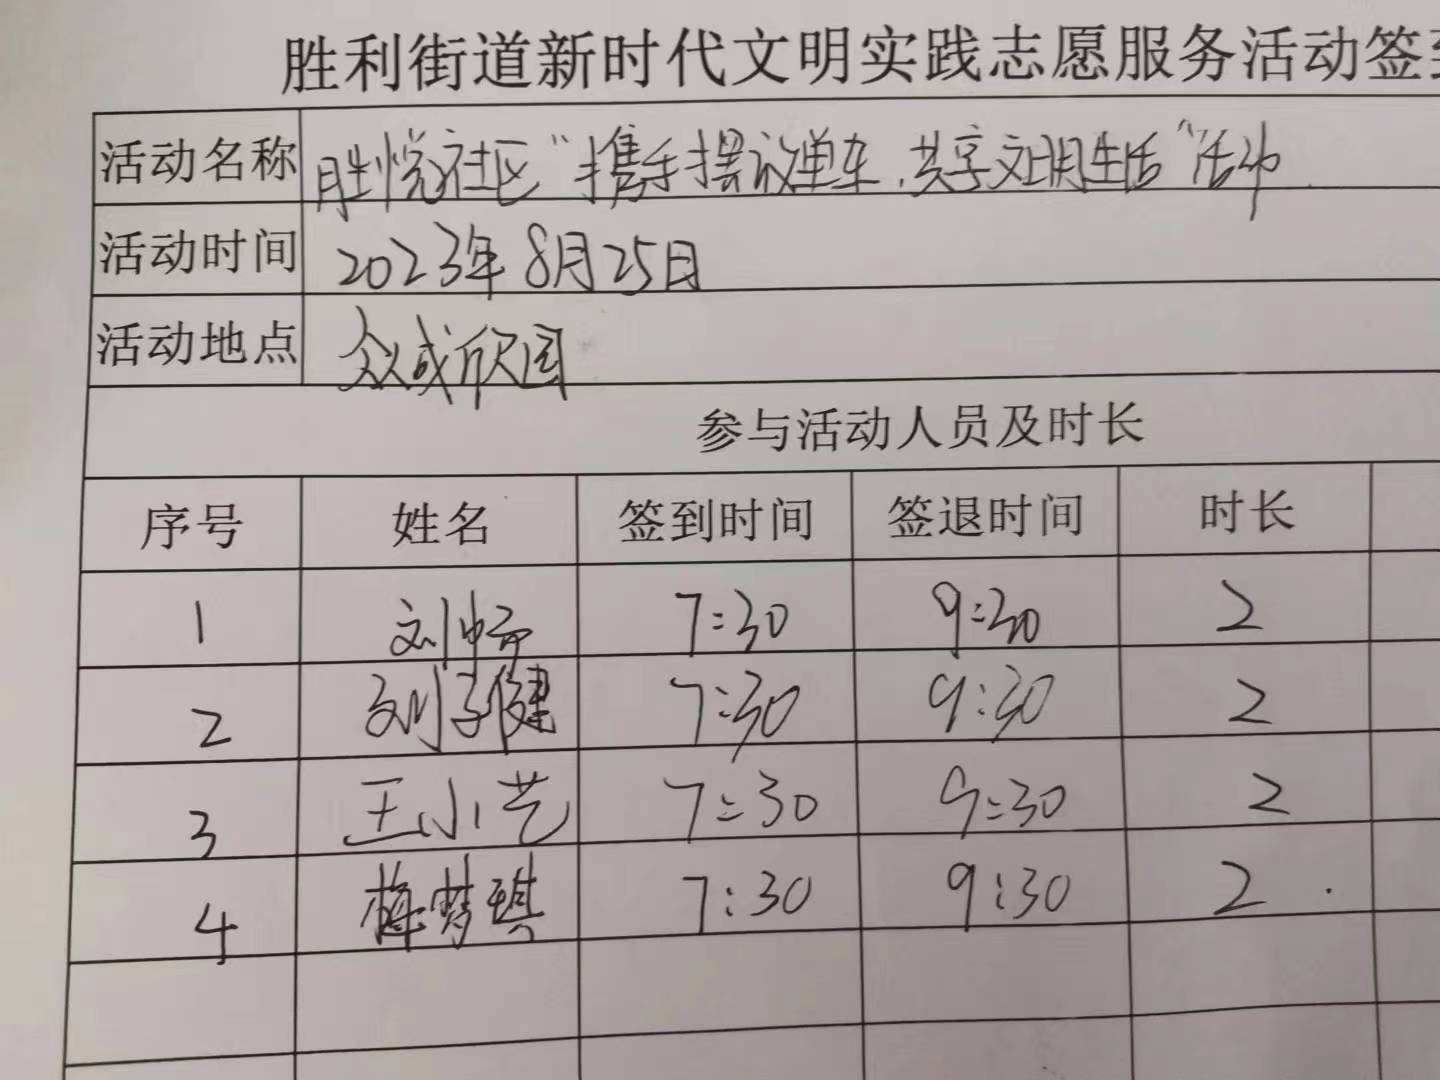 胜利街道新时代文明实践志愿服务活动签到
活动名称 胜悦社区“携手摆放单车,共享文明生活”活动
活动时间 2023年8月25日
活动地点 众成欣园
参与活动人员及时长
序号 姓名 签到时间 签退时间 时长
1 刘畅 7:30 9:30 2
2 刘子健 7:30 9:30 2
3 王小艺 7:30 9:30 2
4 梅梦琪 7:30 9:30 2